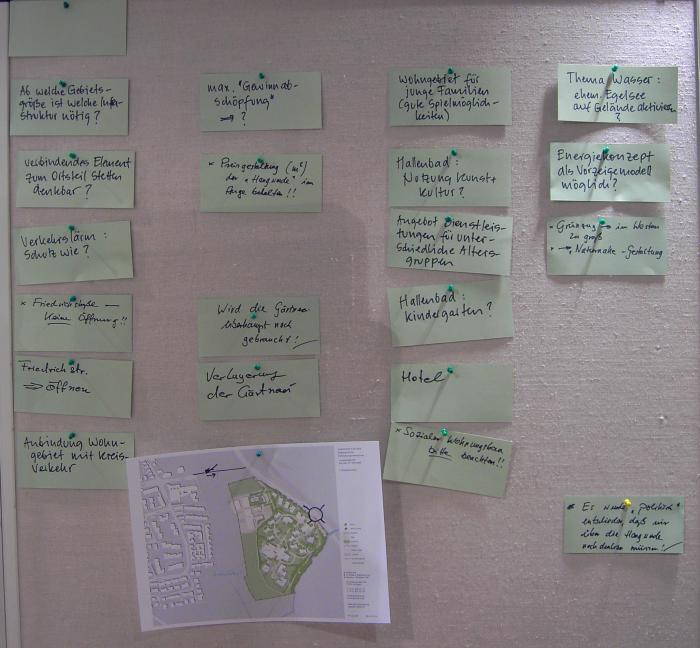 Ab welche Gebiets-
größe ist welche Infra-
struktur nötig?
verbindendes Element
zum Ortsteil Stetten
denkbar?
Verkehrslärm:
Schutz wie?
* Friedrichstraße —
Keine Öffnung!!
Friedrich str.
⇒ öffnen
Anbindung Wohn-
gebiet mit Kreis-
verkehr
max. "Gewinnab-
schöpfung"
→ ?
* Preisgestaltung (m²)
der "Hangweide" im
Auge behalten!!
Wird die Gärtnerei
überhaupt noch
gebraucht?
Verlagerung
der Gärtnerei
Wohngebiet für
junge Familien
(gute Spielmöglich-
keiten)
Hallenbad:
Nutzung Kunst +
Kultur?
Angebot Dienstleis-
tungen für unter-
schiedliche Alters-
gruppen
Hallenbad:
Kindergarten?
Hotel
* Sozialer Wohnungsbau
bitte beachten!!
Thema Wasser:
ehem. Egelsee
auf Gelände aktivieren
?
Energiekonzept
als Vorzeigemodell
möglich?
* Grünzug → im Westen
zu groß
* → Naturnahe - Gestaltung
* Es wurde "politisch"
entschieden, daß wir
über die Hangweide
nachdenken müssen!